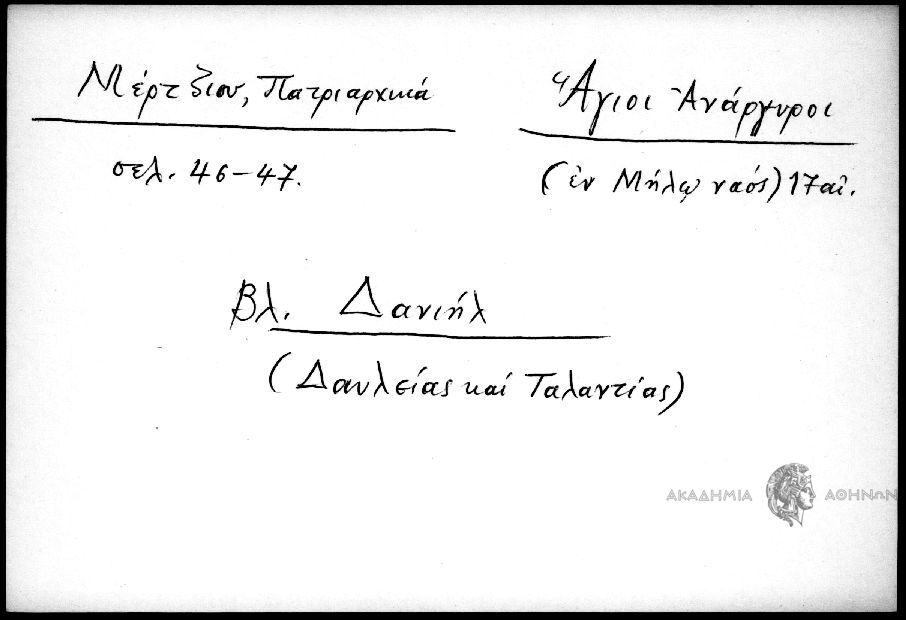 Μέρτζιου, Πατριαρχικά
σελ. 46-47.
Ἅγιοι Ἀνάργυροι
(ἐν Μήλῳ ναός) 17 αἰ.
βλ. Δανιήλ
(Δαυλείας καί Ταλαντίας)
ΑΚΑΔΗΜΙΑ ΑΘΗΝΩΝ